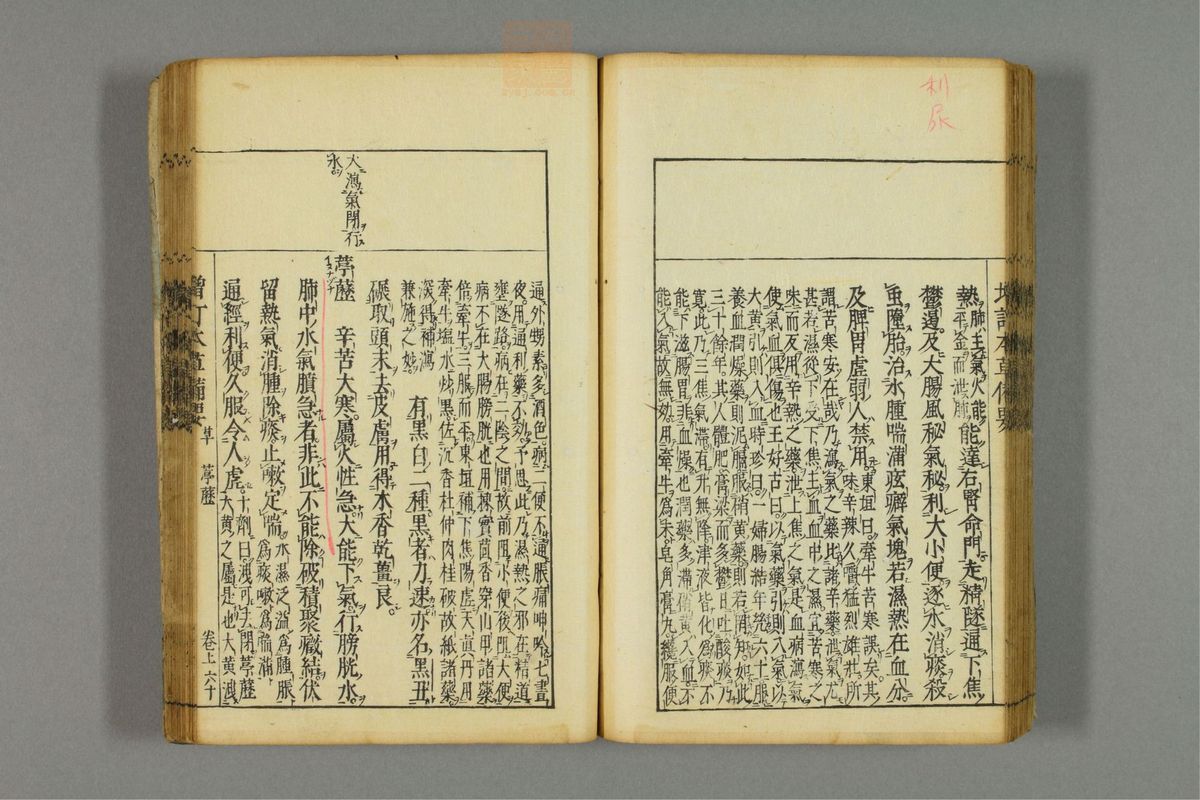 利
尿
増訂本草備要
熱
肺主氣火能
平金而泄肺
能達右腎命門走精隧通下焦
鬱遏及大腸風秘氣秘利大小便逐水消痰殺
蟲墮胎治水腫喘滿痃癖氣塊若濕熱在血分
及脾胃虛弱人禁用
東垣曰牽牛苦寒誤矣其
味辛辣久嚼猛烈雄壯所
謂苦寒安在哉乃瀉氣之藥比諸辛藥泄氣尤
甚若濕從下受下焦主血血中之濕宜苦寒之
味而反用辛熱之藥泄上焦之氣是血病瀉氣
使氣血俱傷也王好古曰以氣藥引則入氣以
大黃引則入血時珍曰一婦腸結年幾六十服
養血潤燥藥則泥膈服硝黃藥則若罔知如此
三十餘年其人體肥膏粱而多鬱日吐酸痰乃
寬此乃三焦氣滯有升無降津液皆化為痰不
能下滋腸胃非血燥也潤藥多滯硝黃入血不
能入氣故無効用牽牛為末皂角膏丸纔服便
通外甥素多酒色病二便不通脹痛呻吟七晝
夜用通利藥不効予思此乃濕熱之邪在精道
壅隧路病在二陰之間故前阻小便後阻大便
病不在大腸膀胱也用楝實茴香穿山甲諸藥
倍牽牛三服而平東垣補下焦陽虛天真丹用
牽牛塩水炒黑佐沉香杜仲肉桂破故紙諸藥
深得補瀉
兼施之妙
有黑白二種黑者力速亦名黑丑
碾取頭末去皮膚用得木香乾薑良
大瀉氣閉行
水
葶藶 辛苦大寒屬火性急大能下氣行膀胱水
肺中水氣膹急者非此不能除破積聚癥結伏
留熱氣消腫除痰止嗽定喘
水濕泛溢為腫脹
為痰嗽為喘滿
通經利便久服令人虛
十劑曰洩可去閉葶藶
大黃之屬是也大黃洩
增訂本草備要 草 葶藶 卷上 六十